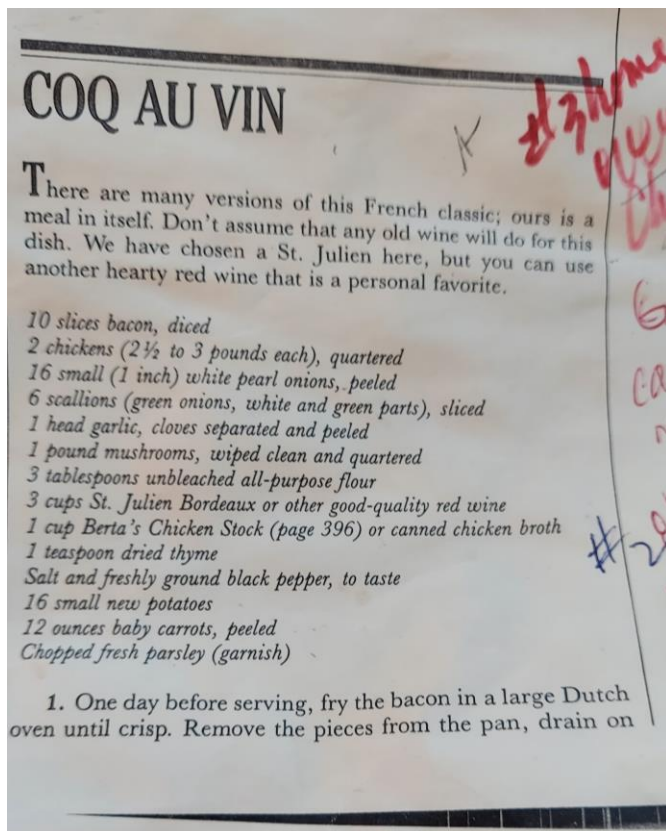 COQ AU VIN
There are many versions of this French classic; ours is a
meal in itself. Don't assume that any old wine will do for this
dish. We have chosen a St. Julien here, but you can use
another hearty red wine that is a personal favorite.
10 slices bacon, diced
2 chickens (2½ to 3 pounds each), quartered
16 small (1 inch) white pearl onions, peeled
6 scallions (green onions, white and green parts), sliced
1 head garlic, cloves separated and peeled
1 pound mushrooms, wiped clean and quartered
3 tablespoons unbleached all-purpose flour
3 cups St. Julien Bordeaux or other good-quality red wine
1 cup Berta's Chicken Stock (page 396) or canned chicken broth
1 teaspoon dried thyme
Salt and freshly ground black pepper, to taste
16 small new potatoes
12 ounces baby carrots, peeled
Chopped fresh parsley (garnish)
1. One day before serving, fry the bacon in a large Dutch
oven until crisp. Remove the pieces from the pan, drain on